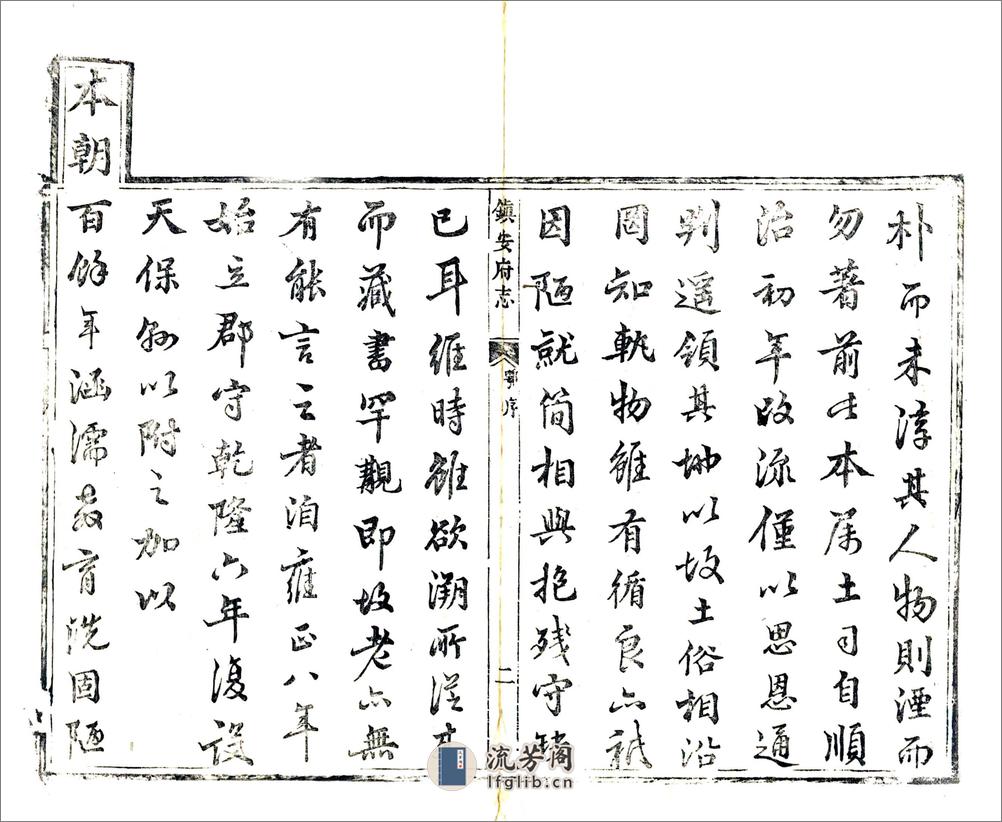 朴而未淳其人物則湮而
勿著前此本属土司自順
治初年改流僅以思恩通
判遥領其地以故土俗相沿
罔知軌物雖有循良亦祇
因陋就简相與抱残守
鎮安府志
序
二
已耳維時雖欲溯所従
而藏書罕觀即故老亦無
有能言之者洎雍正八年
始立郡守乾隆六年復設
天保縣以附之加以
本朝百餘年涵濡教育洗固陋
流芳阁
lfglib.cn